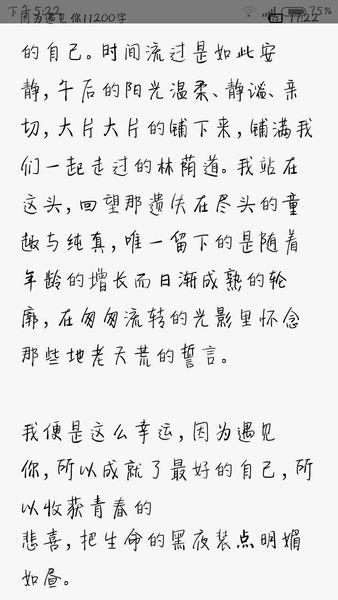 下午5:22
75%
因为遇见你11200字
17:22
的自己。时间流过是如此安
静,午后的阳光温柔、静谧、亲
切,大片大片的铺下来,铺满我
们一起走过的林荫道。我站在
这头,回望那遗失在尽头的童
趣与纯真,唯一留下的是随着
年龄的增长而日渐成熟的轮
廓,在匆匆流转的光影里怀念
那些地老天荒的誓言。
我便是这么幸运,因为遇见
你,所以成就了最好的自己,所
以收获青春的
悲喜,把生命的黑夜装点明媚
如昼。